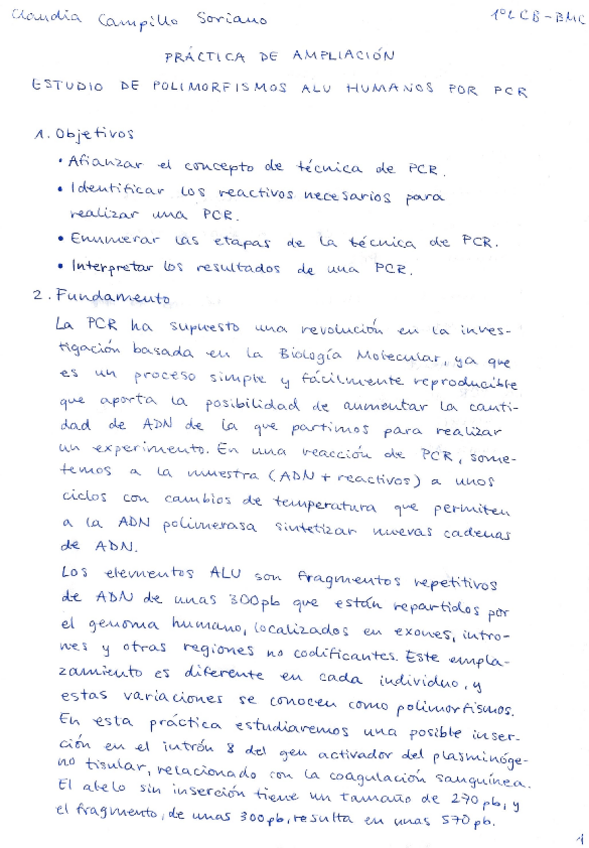 Claudia Campillo Soriano 1º LCB-BMC
PRÁCTICA DE AMPLIACIÓN
ESTUDIO DE POLIMORFISMOS ALU HUMANOS POR PCR
1. Objetivos
• Afianzar el concepto de técnica de PCR.
• Identificar los reactivos necesarios para
realizar una PCR.
• Enumerar las etapas de la técnica de PCR.
• Interpretar los resultados de una PCR.
2. Fundamento
La PCR ha supuesto una revolución en la inves-
tigación basada en la Biología Molecular, ya que
es un proceso simple y fácilmente reproducible
que aporta la posibilidad de aumentar la canti-
dad de ADN de la que partimos para realizar
un experimento. En una reacción de PCR, some-
temos a la muestra (ADN + reactivos) a unos
ciclos con cambios de temperatura que permiten
a la ADN polimerasa sintetizar nuevas cadenas
de ADN.
Los elementos ALU son fragmentos repetitivos
de ADN de unas 300pb que están repartidos por
el genoma humano, localizados en exones, intro-
nes y otras regiones no codificantes. Este empla-
zamiento es diferente en cada individuo, y
estas variaciones se conocen como polimorfismos.
En esta práctica estudiaremos una posible inser-
ción en el intrón 8 del gen activador del plasminóge-
no tisular, relacionado con la coagulación sanguínea.
El alelo sin inserción tiene un tamaño de 270 pb, y
el fragmento, de unas 300pb, resulta en unas 570 pb.
1